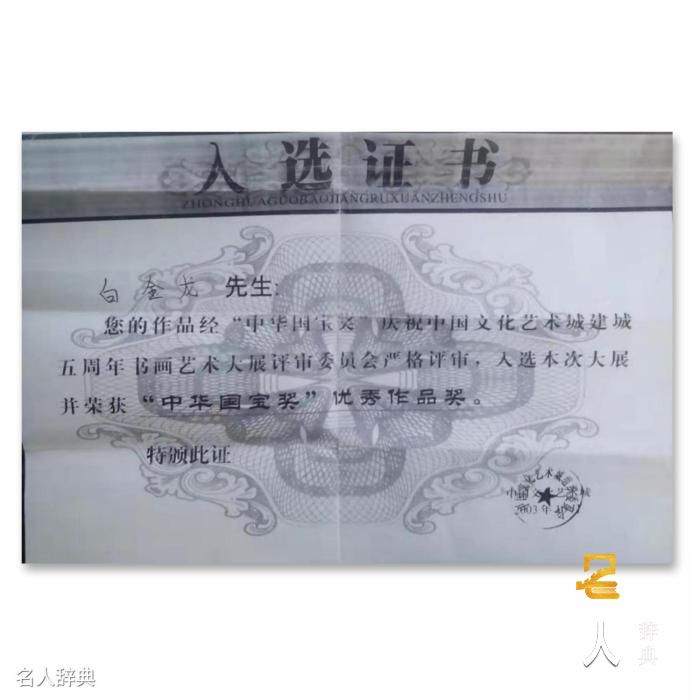 入选证书
ZHONGHUAGUOBAOJIANGRUXUANZHENGSHU
白金龙 先生:
您的作品经“中华国宝奖”庆祝中国文化艺术城建城
五周年书画艺术大展评审委员会严格评审，入选本次大展
并荣获“中华国宝奖”优秀作品奖。
特颁此证
2003年
名人辞典
人辞典